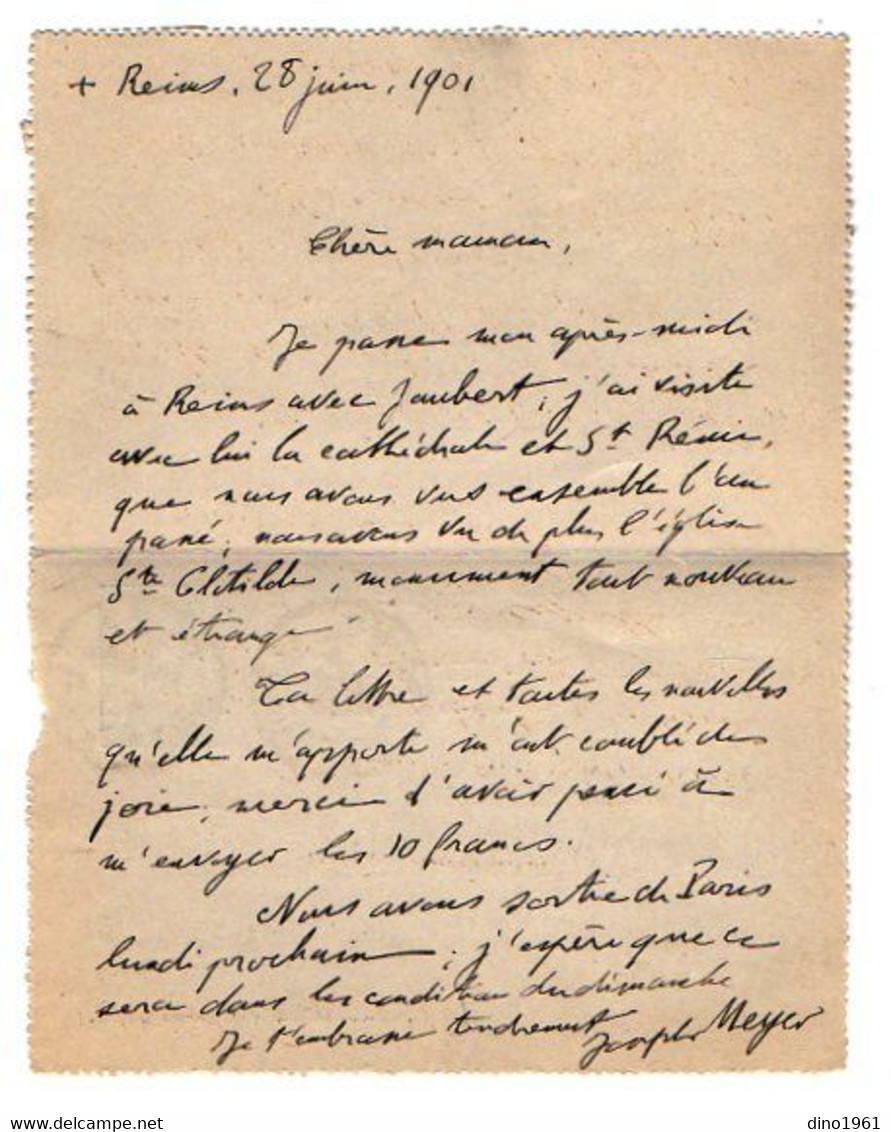 + Reims, 28 juin, 1901
Chère maman,
Je passe mon après-midi
à Reims avec Joubert, j'ai visité
avec lui la cathédrale et St Rémi,
que nous avons vus ensemble l'an
passé; nous avons vu de plus l'église
Ste Clotilde, monument tout nouveau
et étrange.
Ta lettre et toutes les nouvelles
qu'elle m'apporte m'ont comblé de
joie, merci d'avoir pensé à
m'envoyer les 10 francs.
Nous avons sortie de Paris
lundi prochain; j'espère que ce
sera dans les condition du dimanche
Je t'embrasse tendrement
Joseph Meyer
www.delcampe.net
dino1961